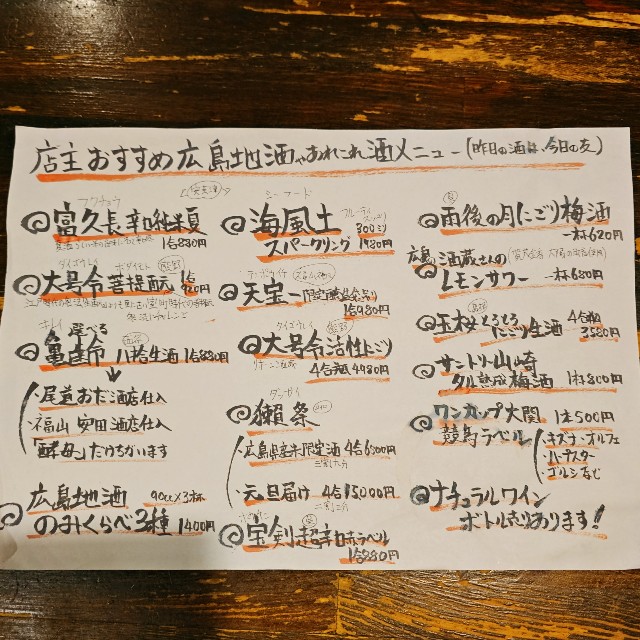 店主おすすめ広島地酒やあれこれ酒メニュー(昨日の酒は、今日の友)
フクチョウ
安芸津
富久長 辛口純米 夏
1合880円
ダイゴウレイ
ボダイモト
熊野
大号令 菩提酛 1合
920円
キレイ
選べる
西条
亀齢 八拾生酒 1合880円
・尾道 おだ酒店仕入
・福山 安田酒店仕入
「酵母」だけちがいます
広島地酒 90cc×3杯
のみくらべ3種 1400円
シーフード
海風土
300ミリ
スパークリング 1980円
天宝一
1合980円
ダイゴウレイ
熊野
大号令 活性にごり
4合瓶 4480円
獺祭
・広島県産米限定酒 4合6500円
・元旦届け 4合15,000円
宝剣 超辛口赤ラベル
1合880円
呉
雨後の月 にごり梅酒
一杯620円
広島の酒蔵さんの
レモンサワー 一杯680円
玉櫻 とろとろ 4合瓶
にごり生酒 3580円
サントリー山崎
タル熟成梅酒 1杯800円
ワンカップ大関 1本500円
競馬ラベル
・キズナ・オルフェ
・ゴルシなど
ナチュラルワイン
ボトル売りあります!